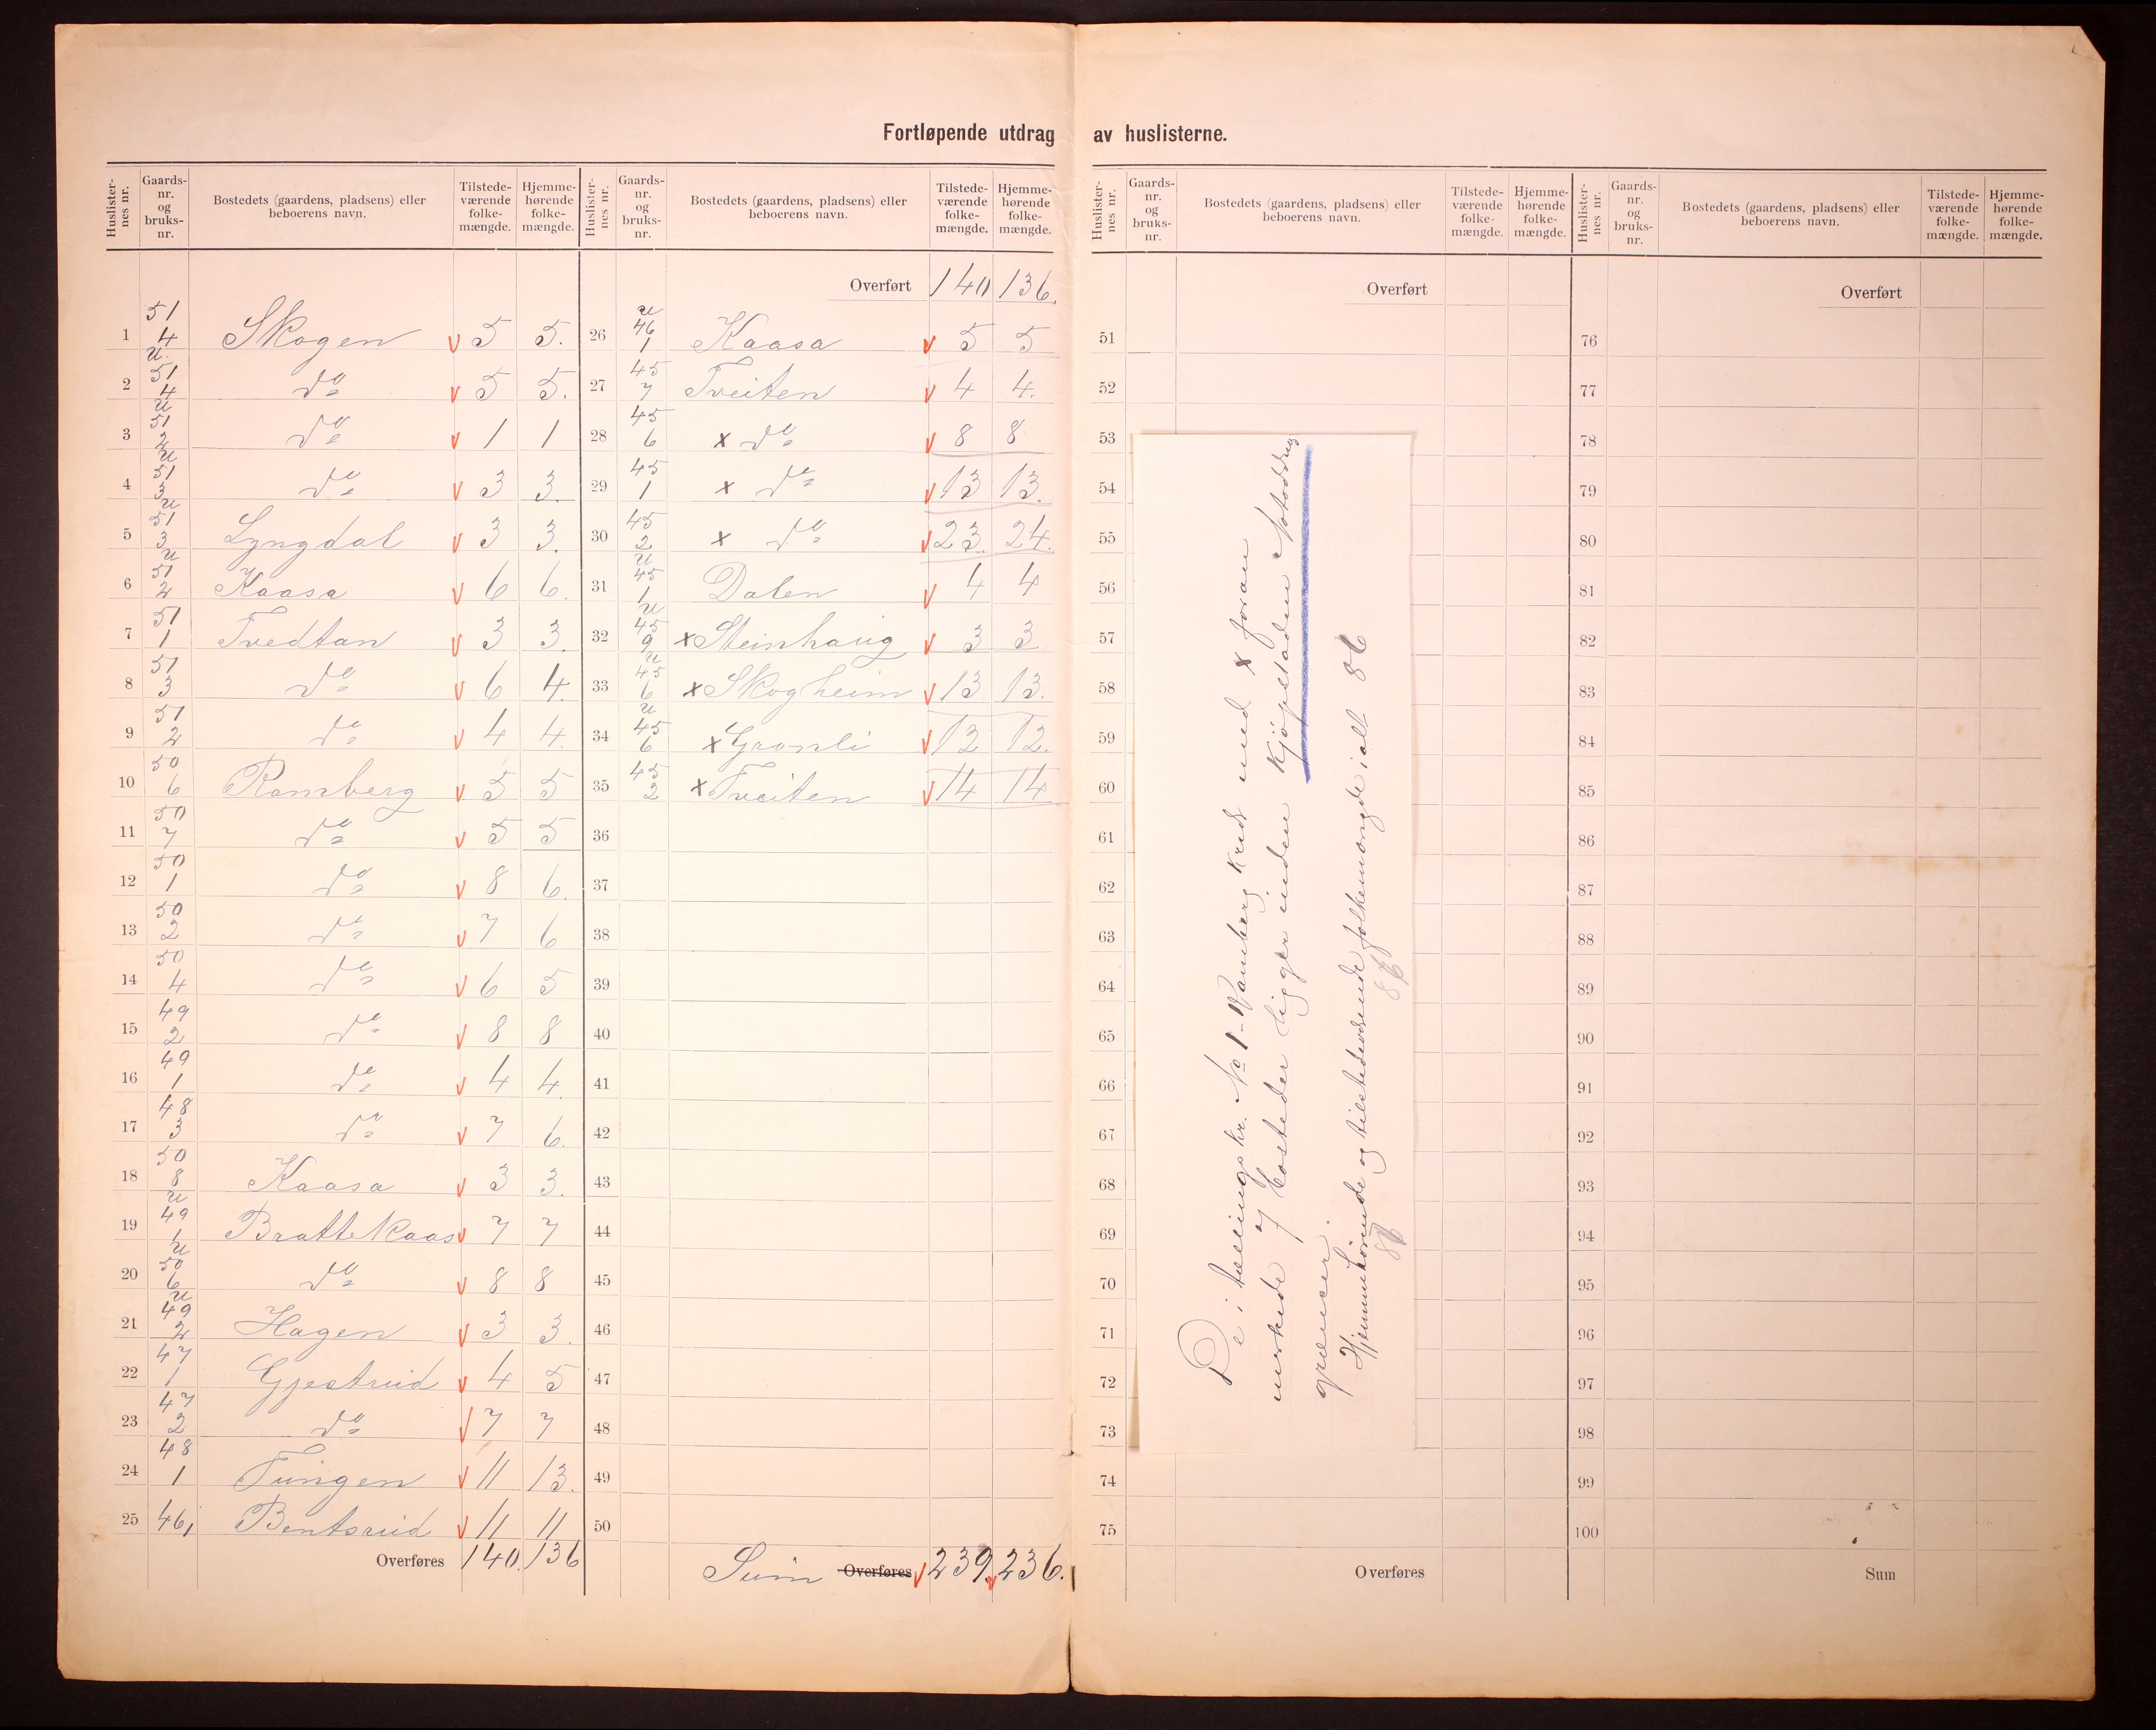 Fortløpende utdrag av huslisterne.
Huslisternes nr. Gaardsnr. og bruksnr. Bostedets (gaardens, pladsens) eller beboerens navn. Tilstedeværende folkemængde. Hjemmehørende folkemængde.
1 51 4 u. Skogen 5 5.
2 51 4 u do 5 5.
3 51 2 u do 1 1
4 51 3 u do 3 3.
5 51 3 u Lyngdal 3 3.
6 51 2 Kaasa 6 6.
7 51 1 Tvedtan 3 3.
8 51 3 do 6 4.
9 51 2 do 4 4.
10 50 6 Ramberg 5 5
11 50 7 do 5 5
12 50 1 do 8 6.
13 50 2 do 7 6
14 50 4 do 6 5
15 49 2 do 8 8
16 49 1 do 4 4.
17 48 3 do 7 6.
18 50 8 u Kaasa 3 3.
19 49 1 u Brattekaas 7 7
20 50 6 u do 8 8
21 49 2 Hagen 3 3.
22 47 1 Gjestrud 4 5
23 47 2 do 7 7
24 48 1 Tungen 11 13.
25 46, Bentsrud 11 11
Overføres 140. 136
Huslisternes nr. Gaardsnr. og bruksnr. Bostedets (gaardens, pladsens) eller beboerens navn. Tilstedeværende folkemængde. Hjemmehørende folkemængde.
Overført 140 136.
26 u 46 1 Kaasa 5 5
27 45 7 Tveiten 4 4.
28 45 6 x do 8 8
29 45 1 x do 13 13.
30 45 2 u x do 23. 24.
31 45 1 u Dalen 4 4
32 45 9 u x Steinhaug 3 3
33 45 6 u x Skogheim 13 13.
34 45 6 x Gronli 12 12.
35 45 2 x Tveiten 14 14
36
37
38
39
40
41
42
43
44
45
46
47
48
49
50
Sum Overføres 239. 236.
Huslisternes nr. Gaardsnr. og bruksnr. Bostedets (gaardens, pladsens) eller beboerens navn. Tilstedeværende folkemængde. Hjemmehørende folkemængde.
Overført
51
52
53
54
55
56
57
58
59
60
61
62
63
64
65
66
67
68
69
70
71
72
73
74
75
Overføres
De i tællingskr. No 1 - Ramberg kreds med x foran
merkede 7 bosteder ligger inden kjøpstaden Notoddens
grænser.
Hjemmehørende og tilstedeværende folkemængde i alt 86
86 86
Huslisternes nr. Gaardsnr. og bruksnr. Bostedets (gaardens, pladsens) eller beboerens navn. Tilstedeværende folkemængde. Hjemmehørende folkemængde.
Overført
76
77
78
79
80
81
82
83
84
85
86
87
88
89
90
91
92
93
94
95
96
97
98
99
100
Sum